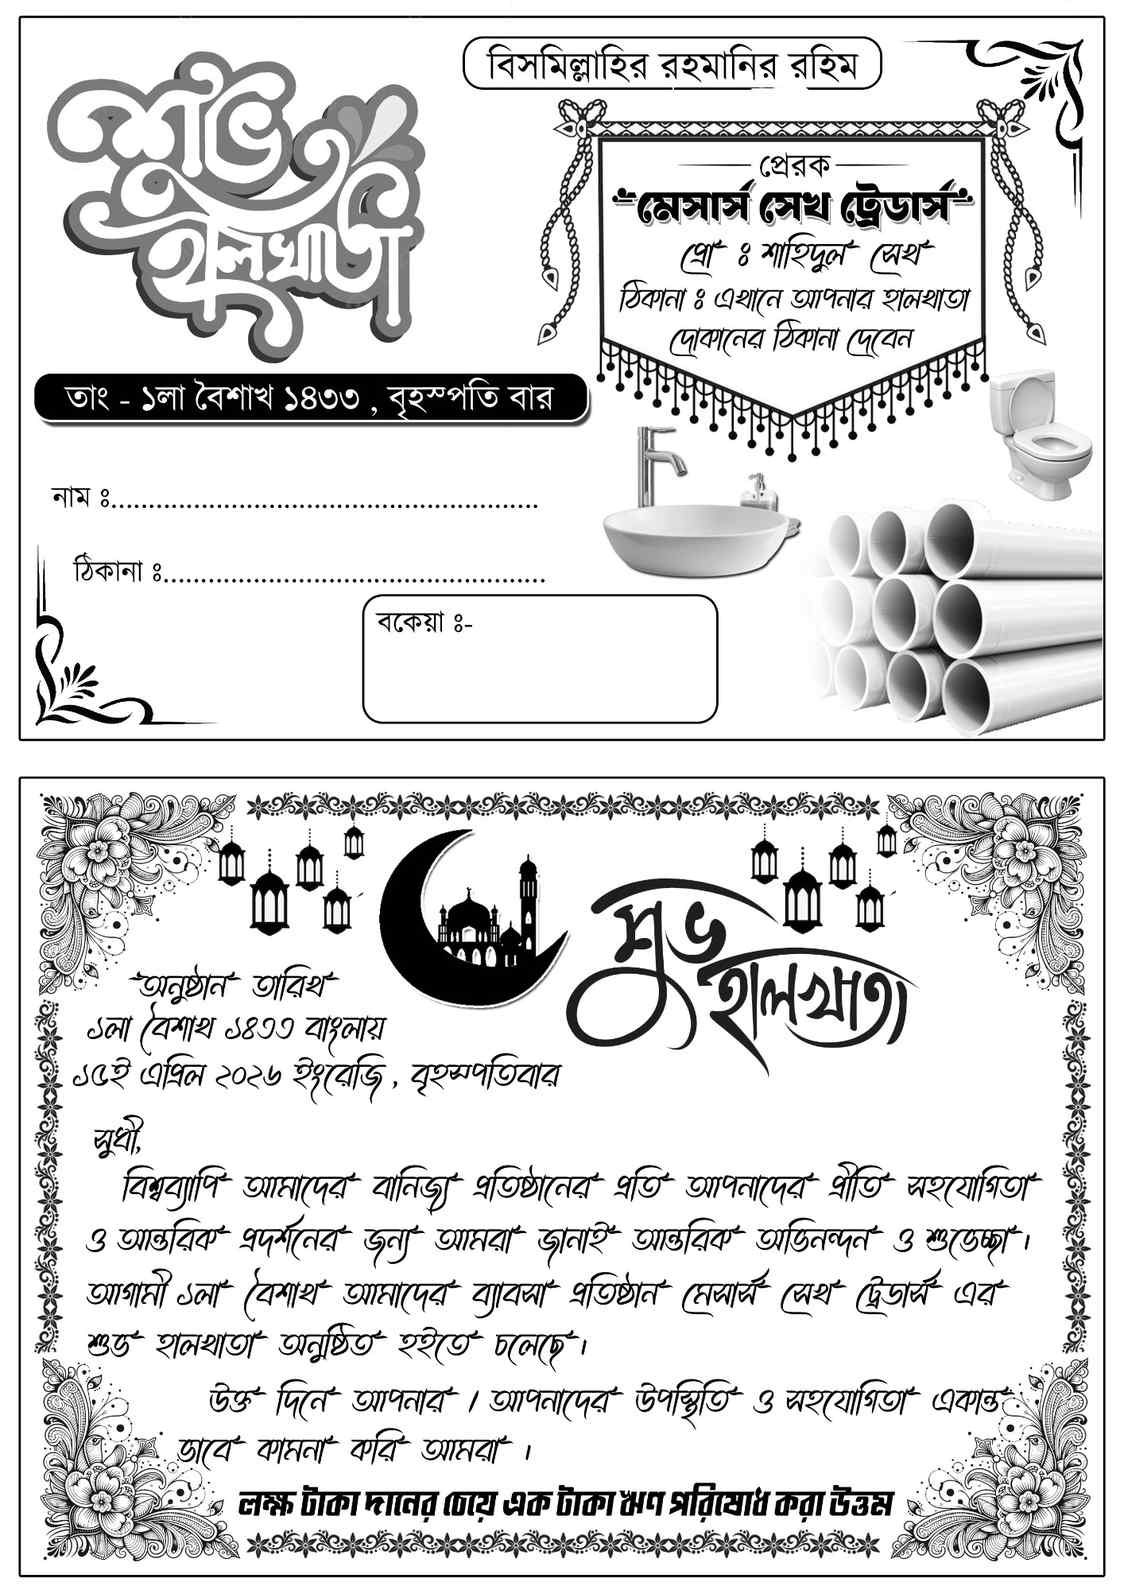 শুভ
হালখাতা
বিসমিল্লাহির রহমানির রহিম
প্রেরক
মেসার্স সেখ ট্রেডার্স
প্রো ঃ শাহিদুল সেখ
ঠিকানা ঃ এখানে আপনার হালখাতা
দোকানের ঠিকানা দেবেন
তাং - ১লা বৈশাখ ১৪৩৩ , বৃহস্পতি বার
নাম ঃ.........................................................
ঠিকানা ঃ...................................................
বকেয়া ঃ-
শুভ
হালখাতা
অনুষ্ঠান তারিখ
১লা বৈশাখ ১৪৩৩ বাংলায়
১৫ই এপ্রিল ২০২৬ ইংরেজি , বৃহস্পতিবার
সুধী,
বিশ্বব্যাপি আমাদের বানিজ্য প্রতিষ্ঠানের প্রতি আপনাদের প্রীতি সহযোগিতা
ও আন্তরিক প্রদর্শনের জন্য আমরা জানাই আন্তরিক অভিনন্দন ও শুভেচ্ছা।
আগামী ১লা বৈশাখ আমাদের ব্যাবসা প্রতিষ্ঠান মেসার্স সেখ ট্রেডার্স এর
শুভ হালখাতা অনুষ্ঠিত হইতে চলেছে।
উক্ত দিনে আপনার / আপনাদের উপস্থিতি ও সহযোগিতা একান্ত
ভাবে কামনা করি আমরা ।
লক্ষ টাকা দানের চেয়ে এক টাকা ঋণ পরিষোধ করা উত্তম